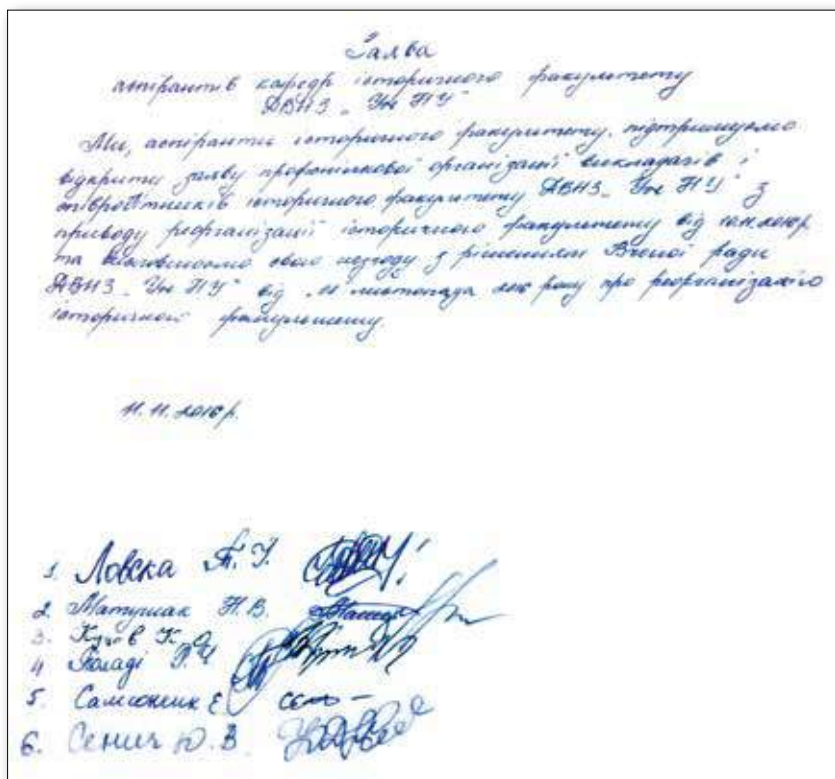 Заява
аспірантів кафедр історичного факультету
ДВНЗ „УжНУ"
Ми, аспіранти історичного факультету, підтримуємо
відкриту заяву профспілкової організації викладачів і
співробітників історичного факультету ДВНЗ „УжНУ" з
приводу реорганізації історичного факультету від 10.11.2016р.
та висловлюємо свою незгоду з рішенням Вченої ради
ДВНЗ „УжНУ" від „11" листопада 2016 року про реорганізацію
історичного факультету.
11.11.2016р.
1. Ловска
2. Матушак Н.В.
3. К.
4
5.
6. Сенич Ю.В